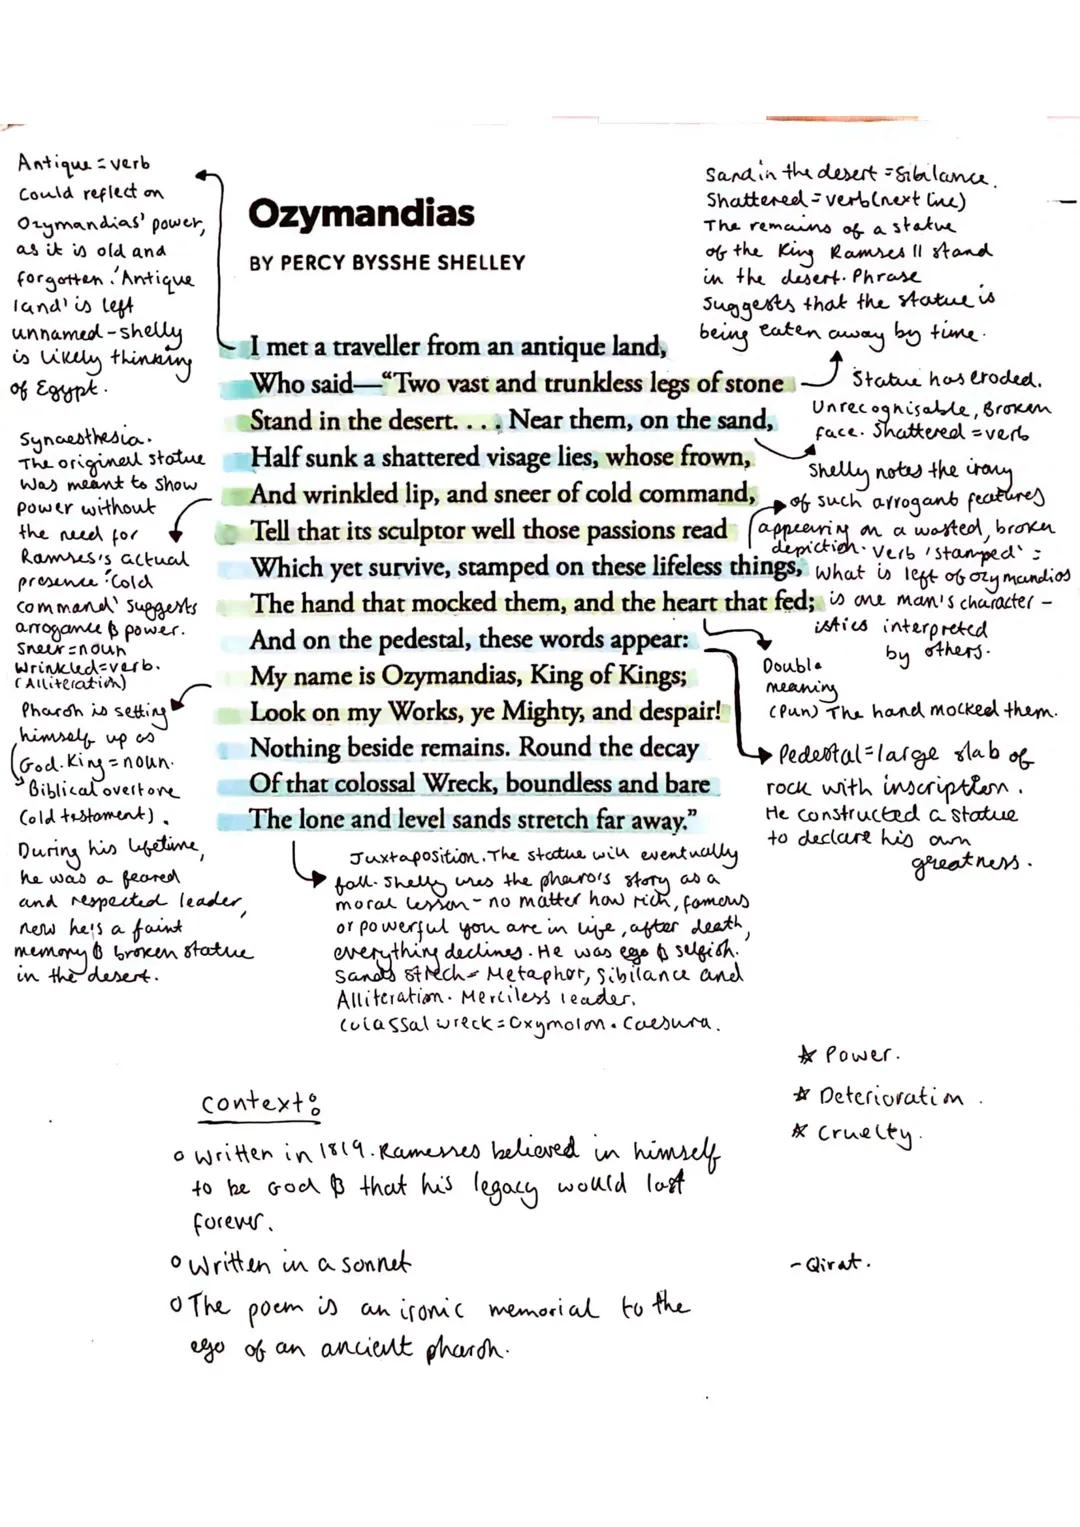 Antique = verb
Could reflect on
Ozymandias' power,
as it is old and
forgotten. 'Antique
land' is left
unnamed - shelly
is likely thinking
of Egypt.
Synaesthesia.
The original statue
was meant to show
power without
the need for
Ramses's actual
presence. 'Cold
command' suggests
arrogance & power.
Sneer = noun
Wrinkled = verb.
(Alliteration)
Pharoh is setting
himself up as
God. King = noun.
Biblical overtone
(old testament).
During his lifetime,
he was a feared
and respected leader,
now he's a faint
memory & broken statue
in the desert.
Ozymandias
BY PERCY BYSSHE SHELLEY
I met a traveller from an antique land,
Who said—“Two vast and trunkless legs of stone
Stand in the desert. . . . Near them, on the sand,
Half sunk a shattered visage lies, whose frown,
And wrinkled lip, and sneer of cold command,
Tell that its sculptor well those passions read
Which yet survive, stamped on these lifeless things,
The hand that mocked them, and the heart that fed;
And on the pedestal, these words appear:
My name is Ozymandias, King of Kings;
Look on my Works, ye Mighty, and despair!
Nothing beside remains. Round the decay
Of that colossal Wreck, boundless and bare
The lone and level sands stretch far away.”
Sand in the desert = Sibilance.
Shattered = verb (next line)
The remains of a statue
of the King Ramses II stand
in the desert. Phrase
suggests that the statue is
being eaten away by time.
Statue has eroded.
Unrecognisable, Broken
face. Shattered = verb
Shelly notes the irony
of such arrogant features
appearing on a wasted, broken
depiction. Verb 'stamped' =
What is left of ozymandios
is one man's character -
istics interpreted
by others.
Double
meaning
(Pun) The hand mocked them.
Pedestal = large slab of
rock with inscription.
He constructed a statue
to declare his own
greatness.
Juxtaposition. The statue will eventually
fall. Shelly uses the pharo's story as a
moral lesson - no matter how rich, famous
or powerful you are in life, after death,
everything declines. He was ego & selfish.
Sands strech = Metaphor, Sibilance and
Alliteration. Merciless leader.
Colassal wreck = Oxymolon. Caesura.
★ Power.
★ Deterioration.
★ Cruelty.
Context:
o Written in 1819. Ramesses believed in himself
to be God & that his legacy would last
forever.
o Written in a sonnet
o The poem is an ironic memorial to the
ego of an ancient pharoh.
- Qirat.